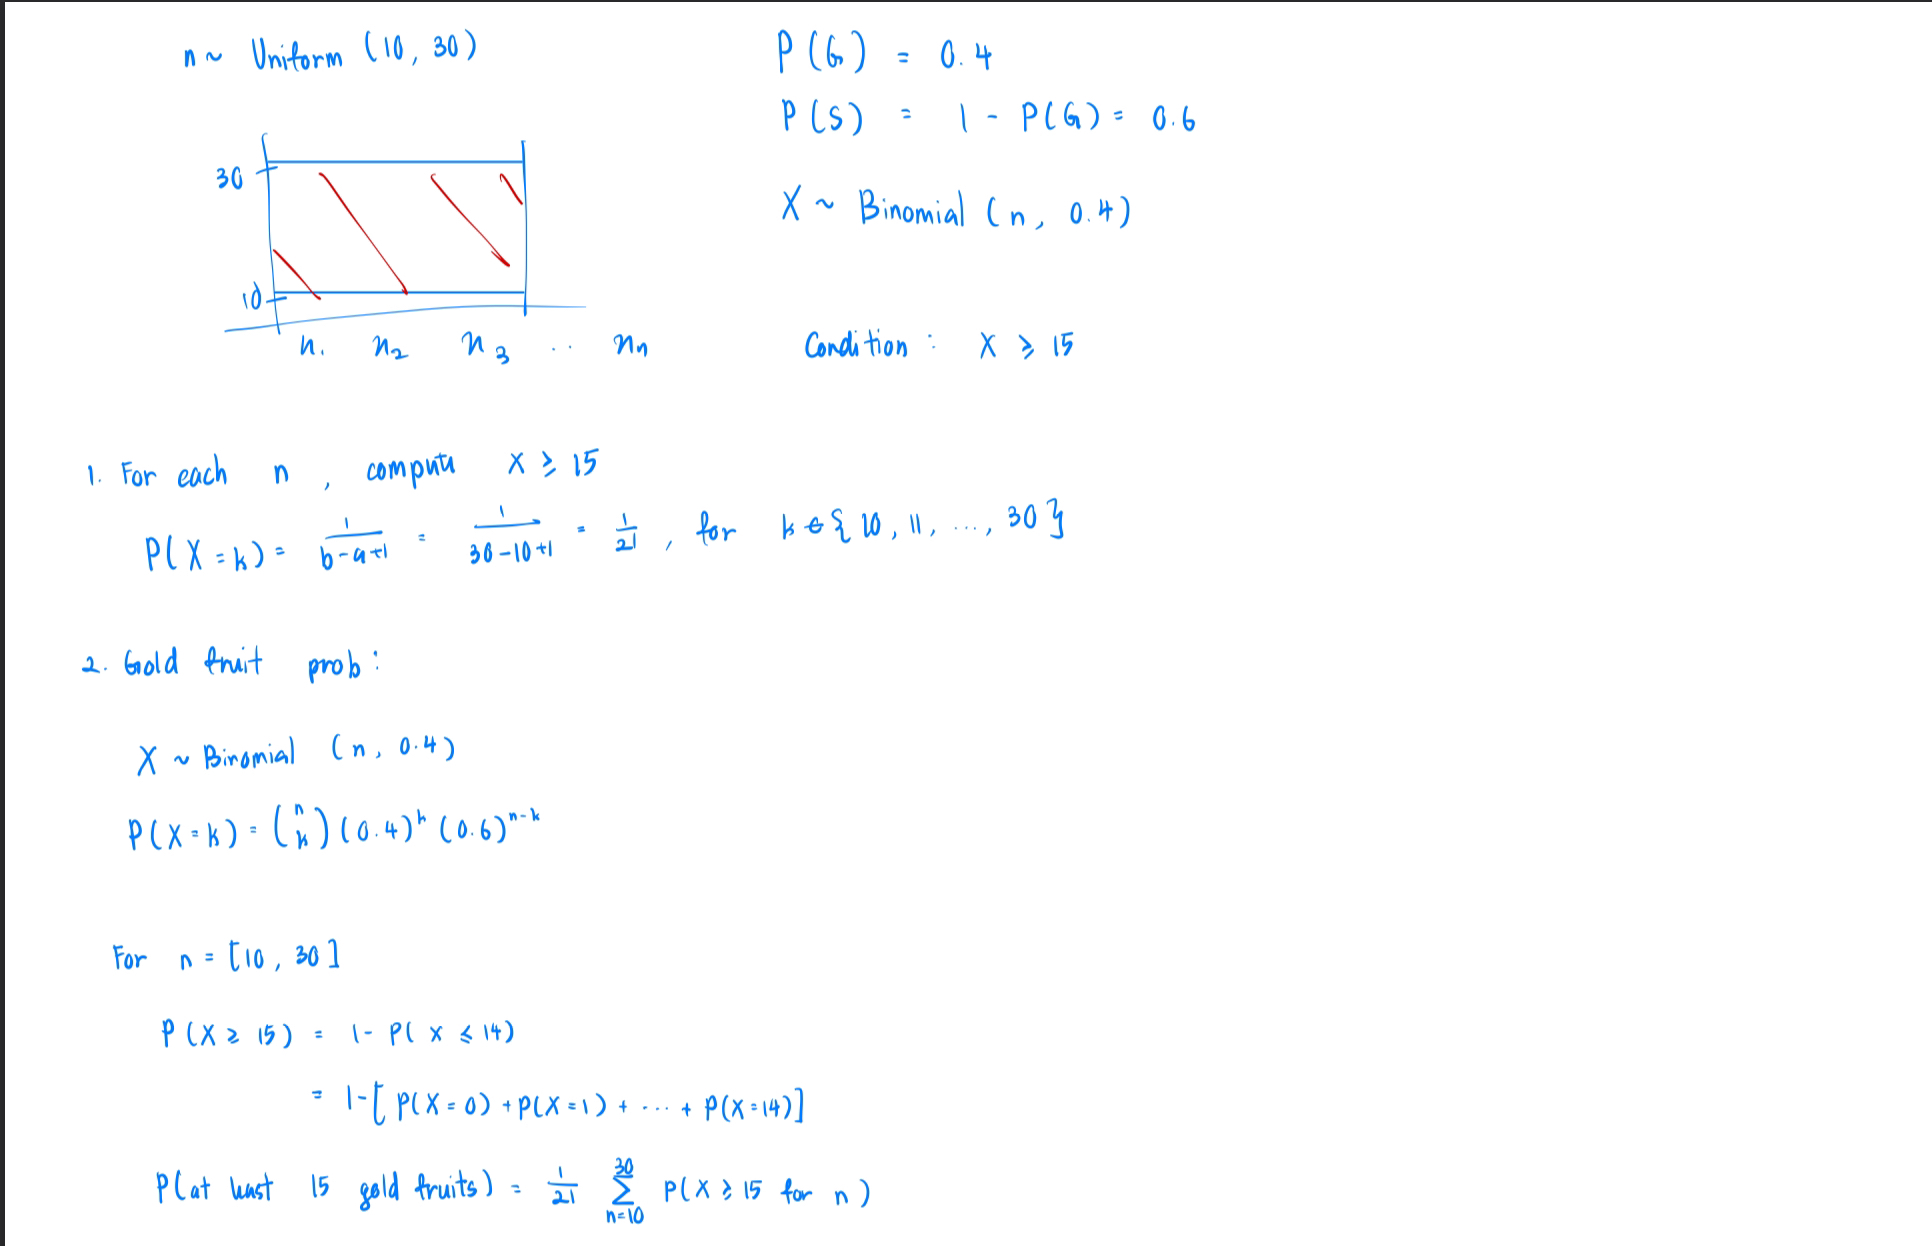 n ~ Uniform (10, 30)
P(G) = 0.4
P(S) = 1 - P(G) = 0.6
30
X ~ Binomial (n, 0.4)
10
n₁ n₂ n₃ .. nₙ
Condition : X ≥ 15
1. For each n , compute X ≥ 15
P(X = k) = 1/(b-a+1) = 1/(30-10+1) = 1/21 , for k ∈ { 10, 11, ..., 30 }
2. Gold fruit prob :
X ~ Binomial (n, 0.4)
P(X = k) = (n k) (0.4)^k (0.6)^(n-k)
For n = [10, 30]
P(X ≥ 15) = 1 - P( x ≤ 14)
= 1 - [ P(X = 0) + P(X = 1) + ... + P(X = 14)]
P(at least 15 gold fruits) = 1/21 ∑_{n=10}^{30} P(X ≥ 15 for n)